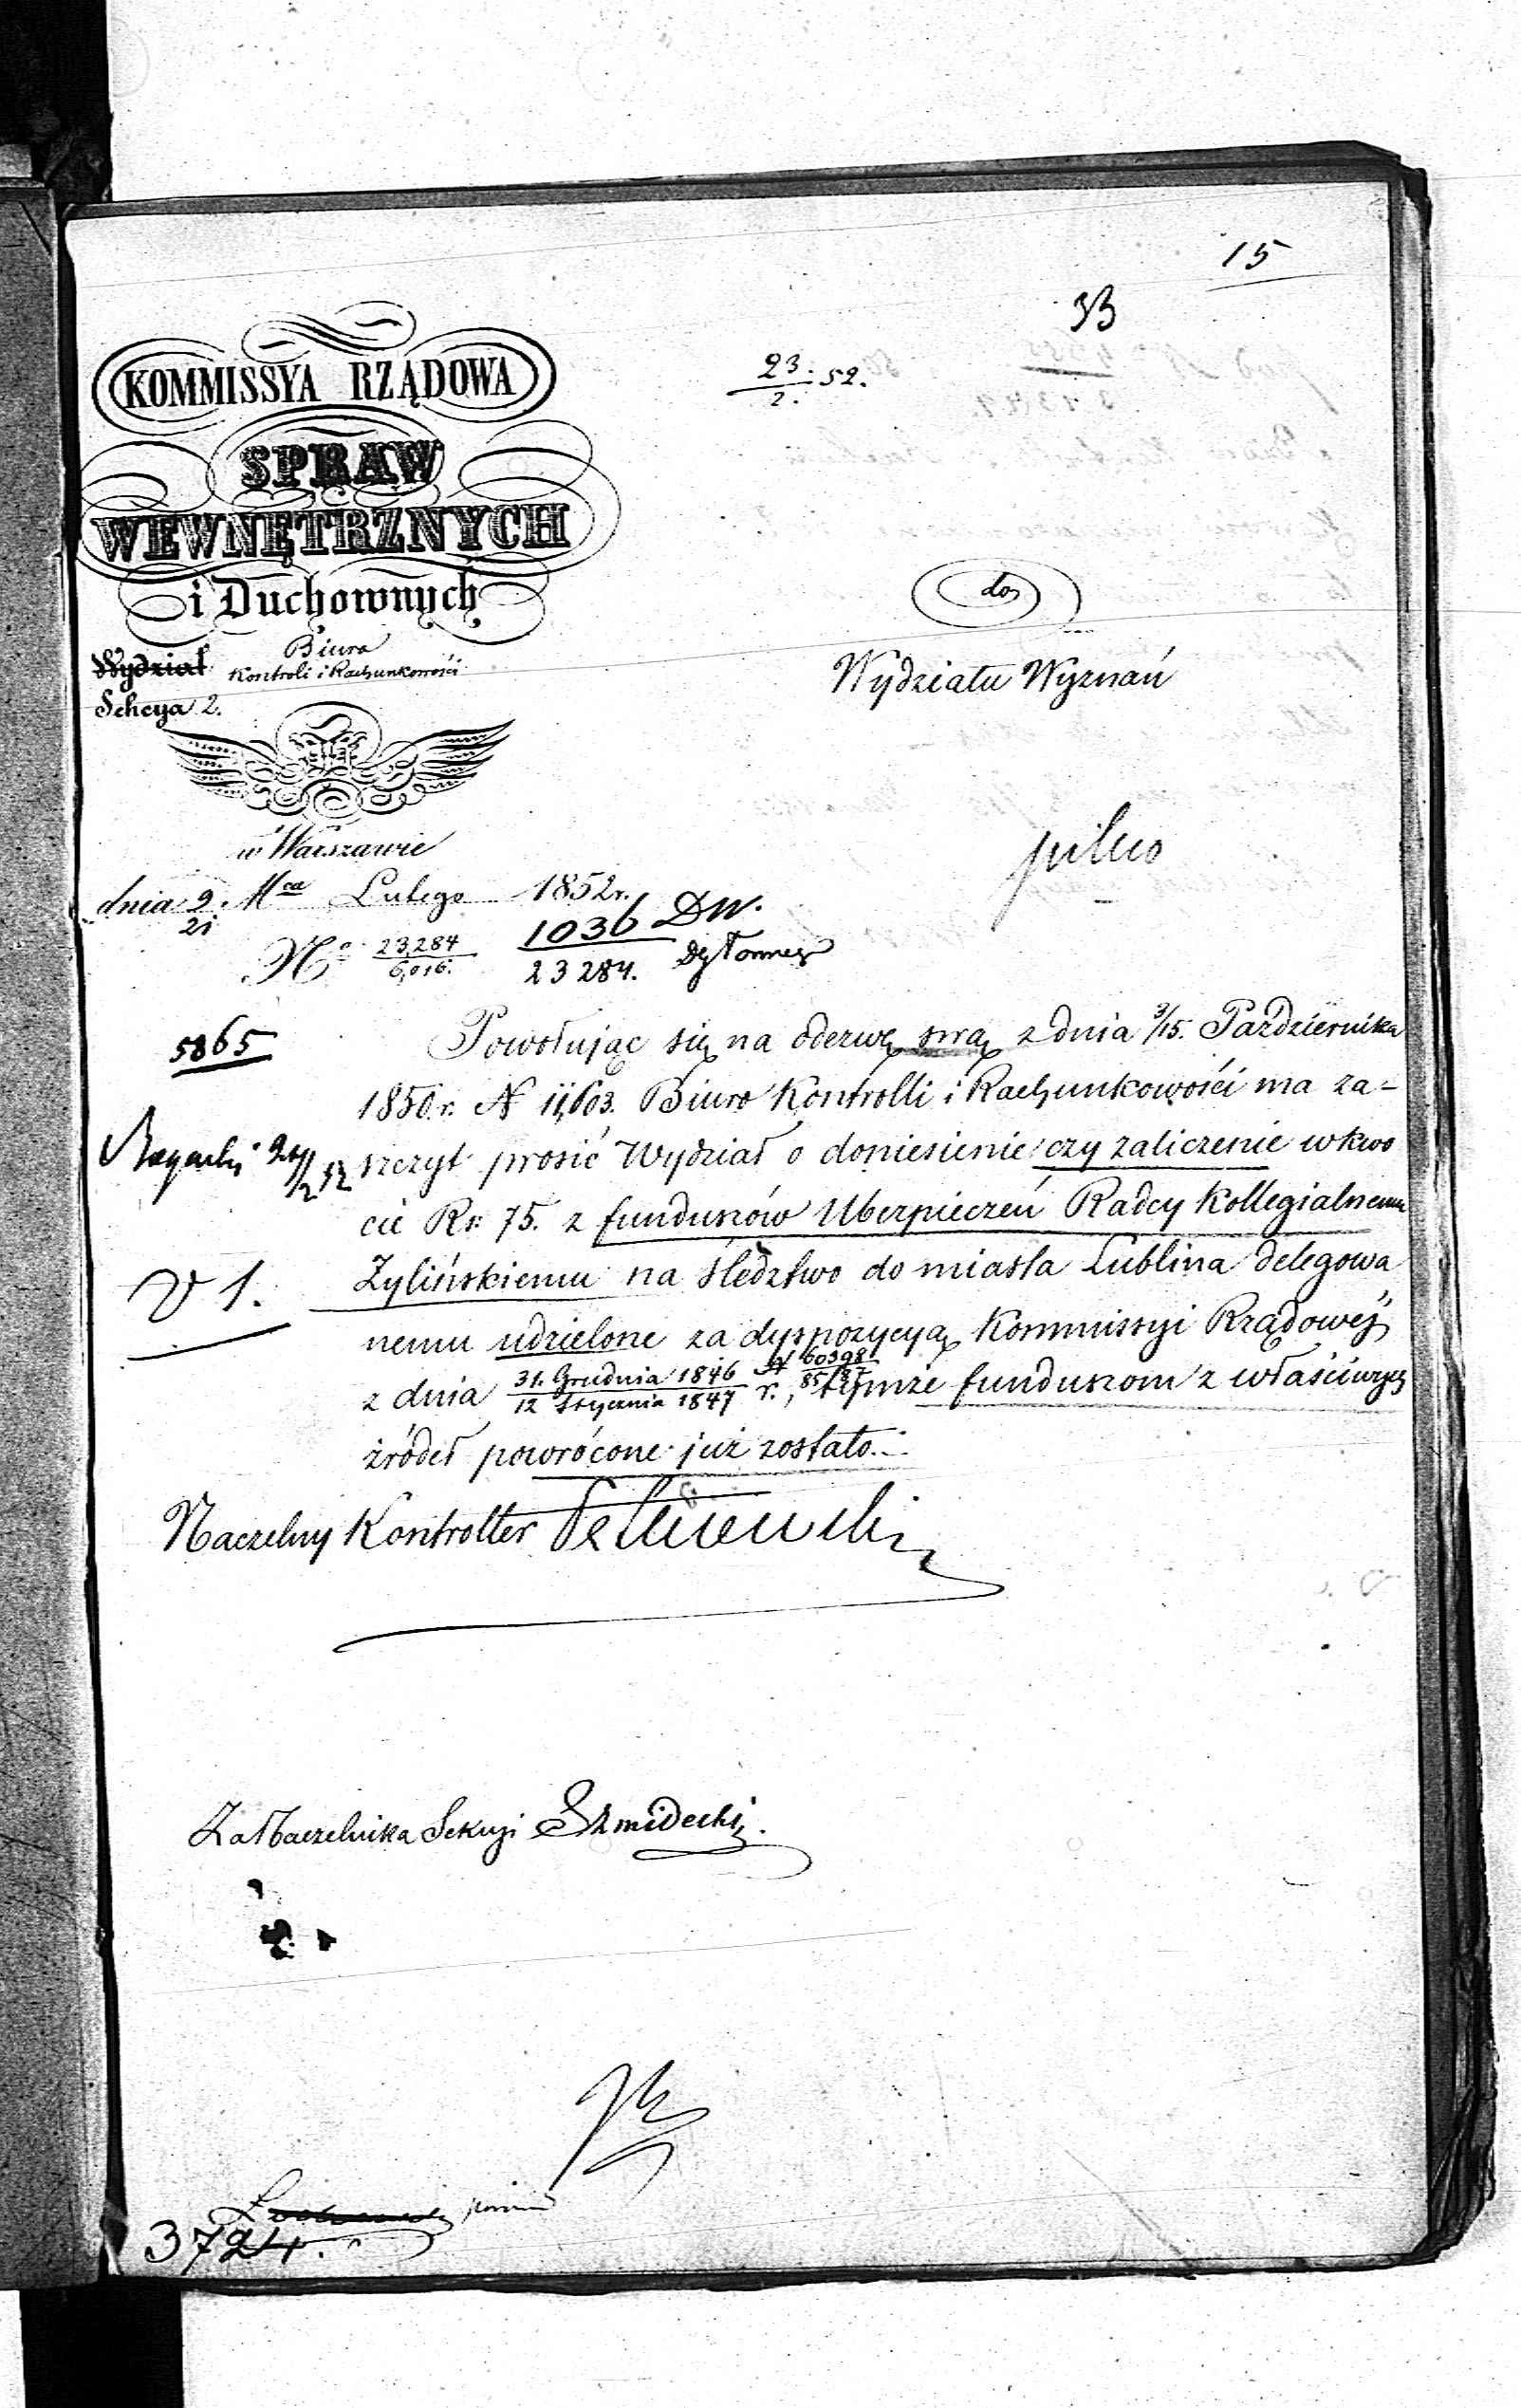 15
33
23./2. 52.
KOMMISSYA RZĄDOWA
SPRAW
WEWNĘTRZNYCH
i Duchownych
Wydział Biura
Kontroli i Rachunkowości
Sekcya 2.
do
Wydziału Wyznań
w Warszawie
pilno
dnia 9/21 Mca Lutego 1852 r.
No 23,284/6,016. 1036/23284. DW.
5865
Powołując się na odezwę swą z dnia 3/15. Października
1850 r. N 11,603. Biuro Kontrolli i Rachunkowości ma za-
szczyt prosić Wydział o doniesienie czy zaliczenie w kwo
cie Rs: 75. z funduszów Ubezpieczeń Radcy Kollegialnemu
V 1.
Żylińskiemu na śledztwo do miasta Lublina delegowa
nemu udzielone za dyspozycyą Kommissyi Rządowéj
z dnia 31. Grudnia 1846/12 Stycznia 1847 r. N 60398, tymże funduszom z właściwych
źródeł powrócone już zostało.
Naczelny Kontroller
Za Naczelnika Sekcyi Szmidecki.
3724.